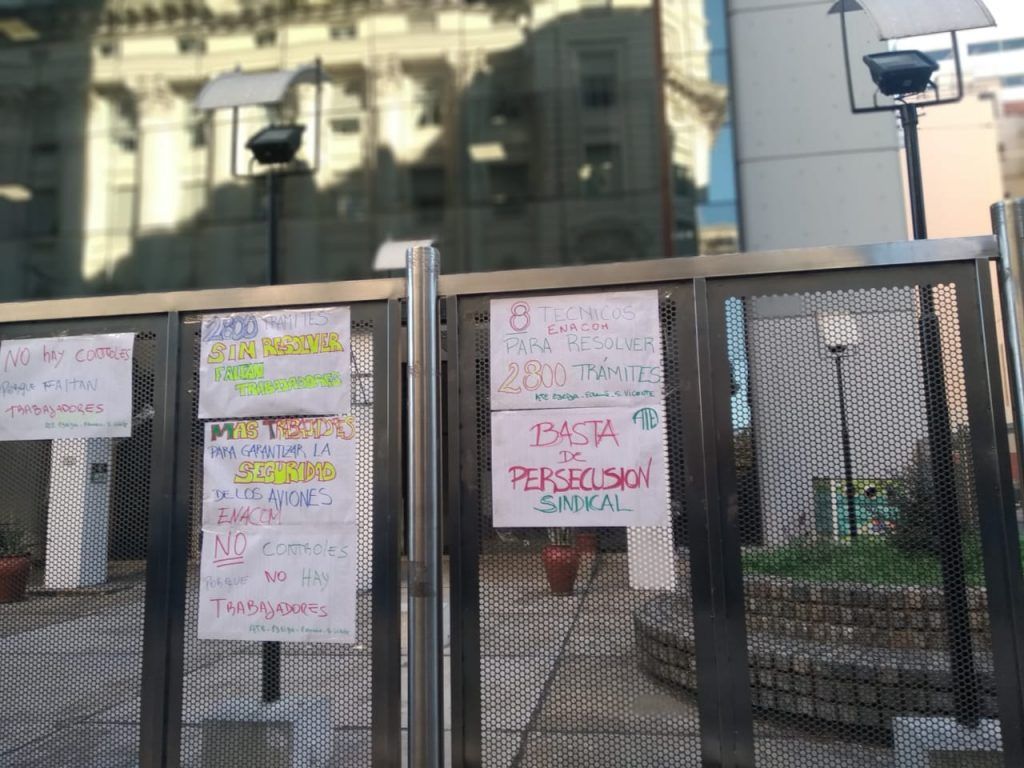 NO HAY CONTROLES
PORQUE FALTAN
TRABAJADORES
2800 TRAMITES
SIN RESOLVER
FALTAN
TRABAJADORES
MAS TRABAJADORES
PARA GARANTIZAR LA
SEGURIDAD
DE LOS AVIONES
ENACOM
NO CONTROLES
PORQUE NO HAY
TRABAJADORES
ATE
8 TECNICOS
ENACOM
PARA RESOLVER
2800 TRÁMITES
ATE S. VICENTE
ATE
BASTA
DE
PERSECUSION
SINDICAL